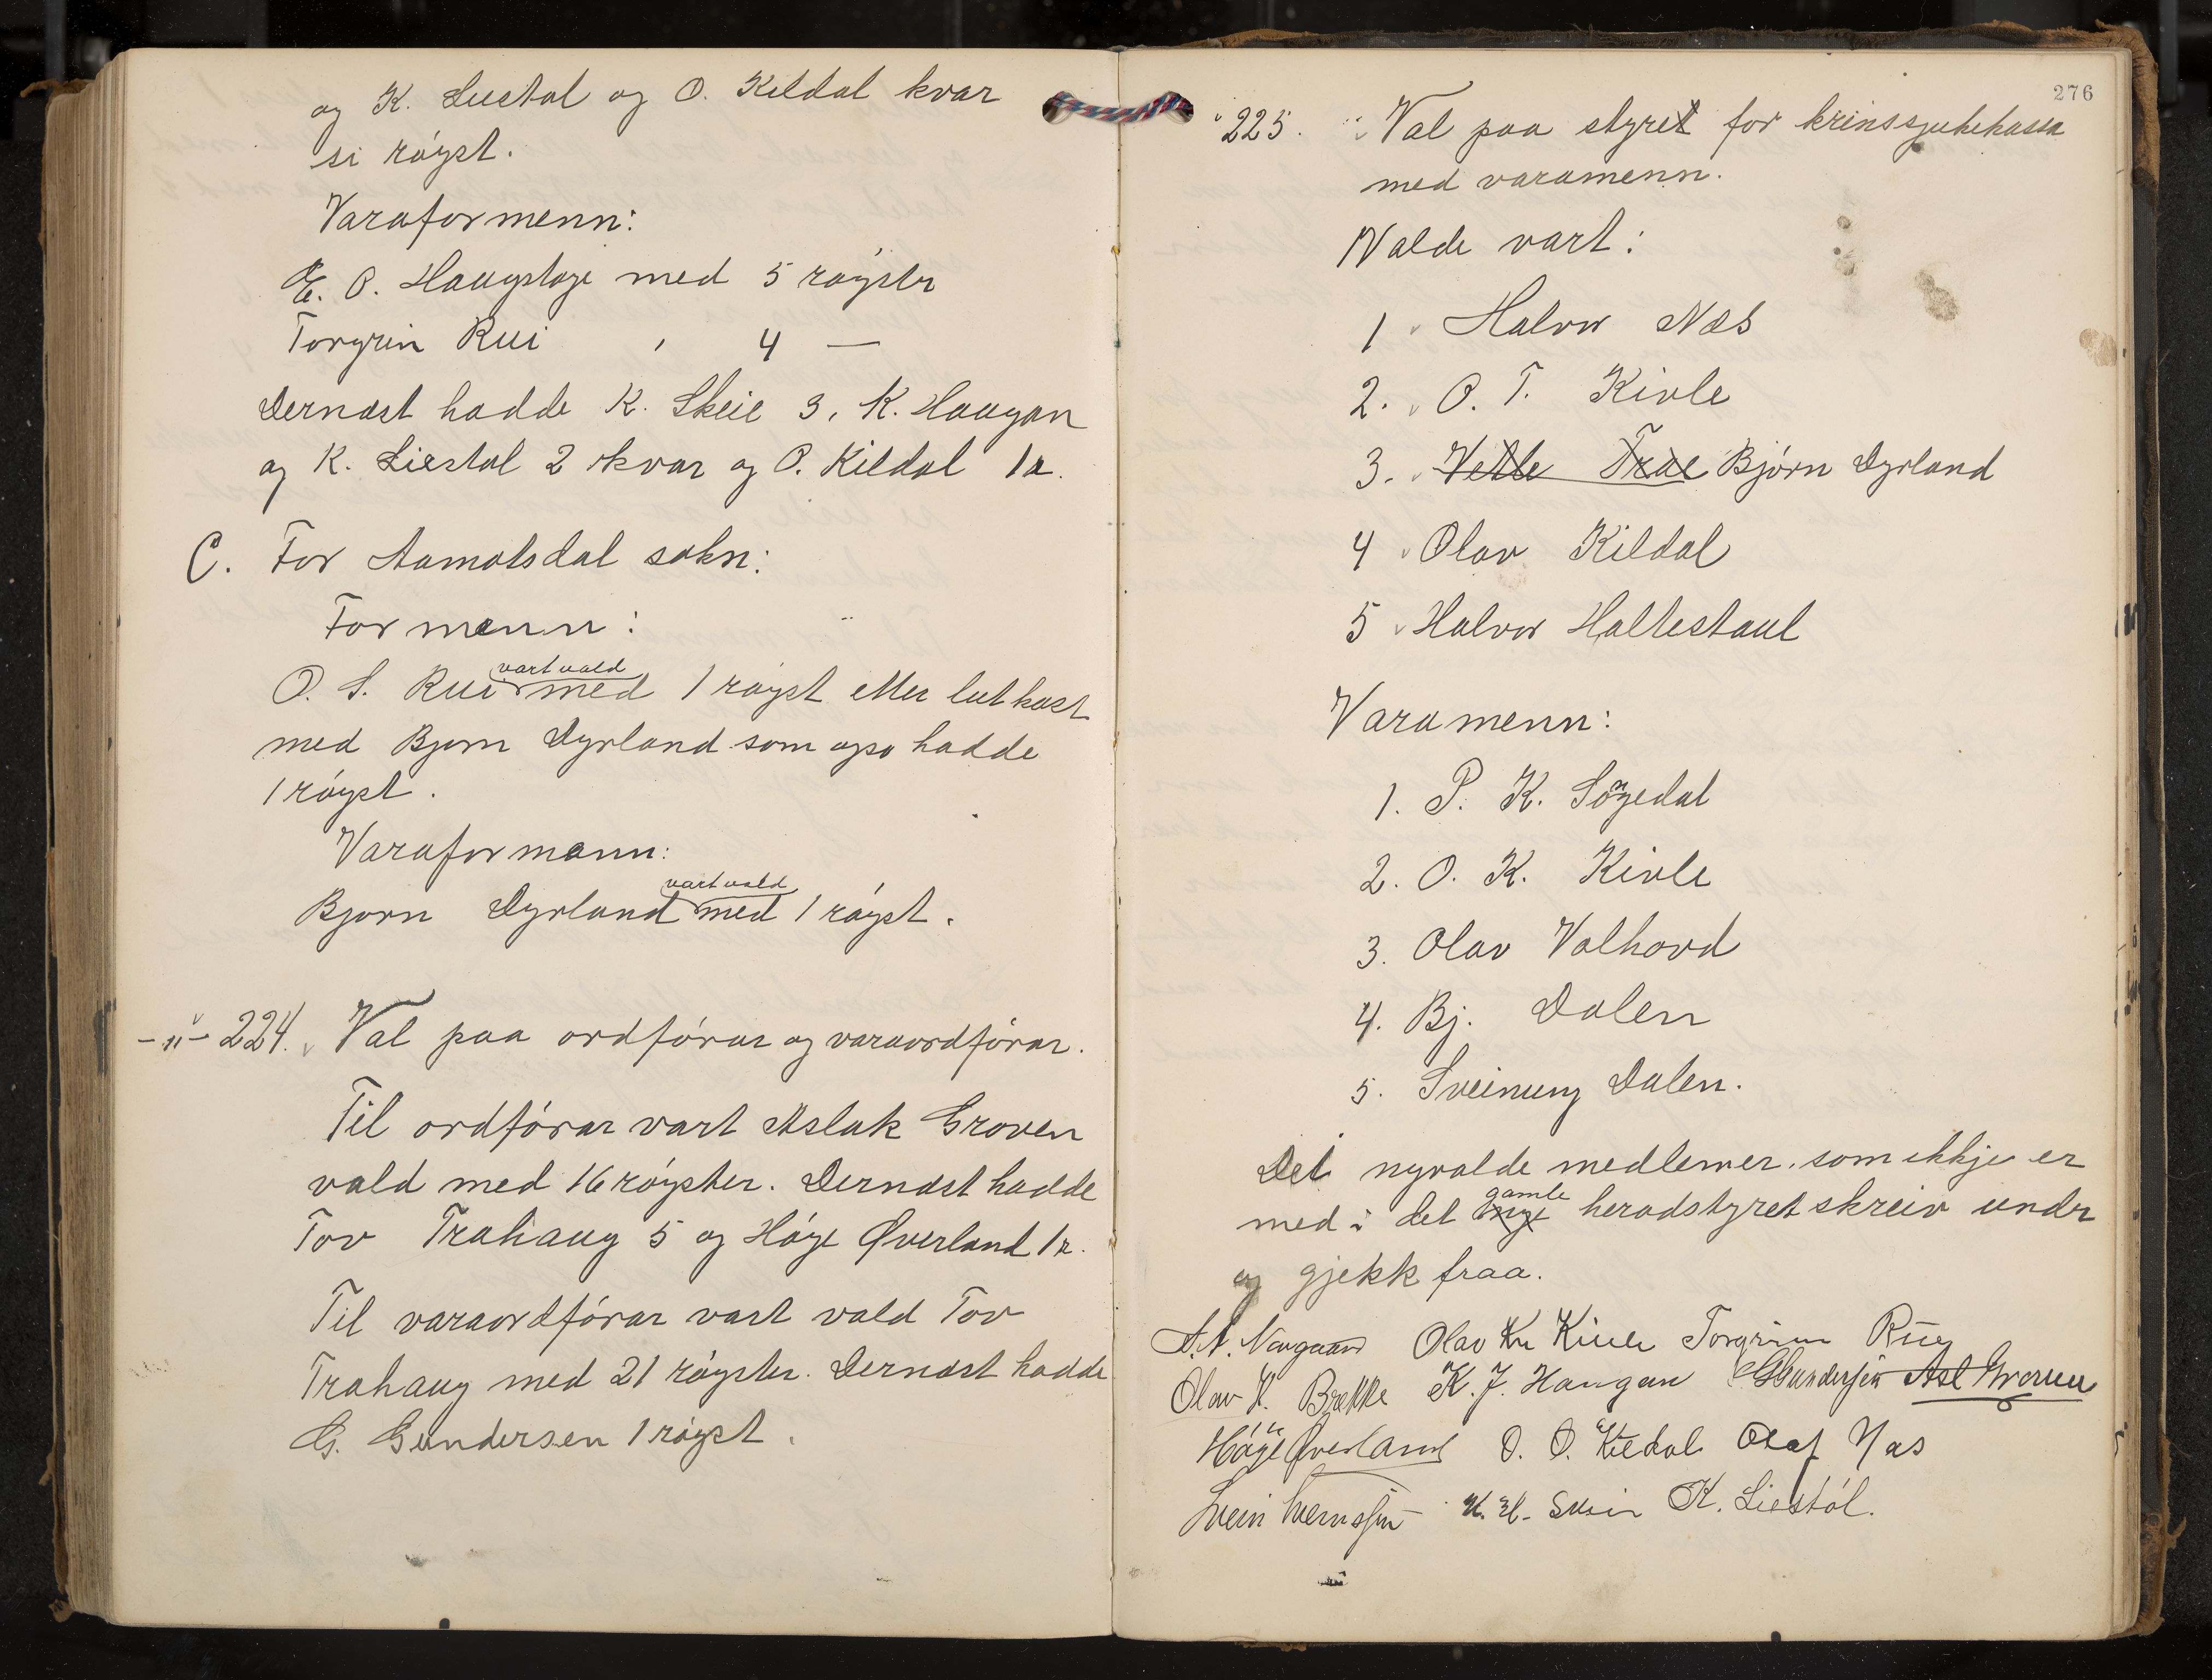 og K. Liestøl og O. Kildal kvar
si røyst.
Varaformenn:
E. O. Haugstoge med 5 røyster
Torgrim Rui , 4 —
Dernæst hadde K. Skeie 3, K. Haugan
og K. Liestøl 2 kvar og O. Kildal 1 r.
C. For Aamotsdal sokn:
Formann:
vart vald
O. S. Rui med 1 røyst etter lutkast
med Bjørn Dyrland som ogso hadde
1 røyst.
Varaformann:
vart vald
Bjørn Dyrland med 1 røyst.
-"- 224. Val paa ordførar og varaordførar.
Til ordførar vart Aslak Groven
vald med 16 røyster. Dernæst hadde
Tov Trahaug 5 og Høge Øverland 1 r.
Til varaordførar vart vald Tov
Trahaug med 21 røyster. Dernæst hadde
G. Gundersen 1 røyst.
276
225. Val paa styret for krinssjukekassa
med varamenn.
Valde vart:
1 Halvor Næs
2. O. T. Kivle
3. Vetle Træe Bjørn Dyrland
4 Olav Kildal
5 Halvor Haltestaul
Varamenn:
1. P. K. Songedal
2. O. K. Kivle
3. Olav Valhovd
4. Bj. Dalen
5. Sveinung Dalen.
Dei nyvalde medlemer som ikkje er
gamle
med i det nye heradstyret skreiv under
og gjekk fraa.
A. A. Norgaard Olav Kn Kivle Torgrim Rui
Olav H. Brekke K. J. Haugan G Gundersen Asl Groven
Høye Øverland O. O. Kildal Olaf Næs
Svein Sveinssøn K. H. Skeie K. Liestøl.